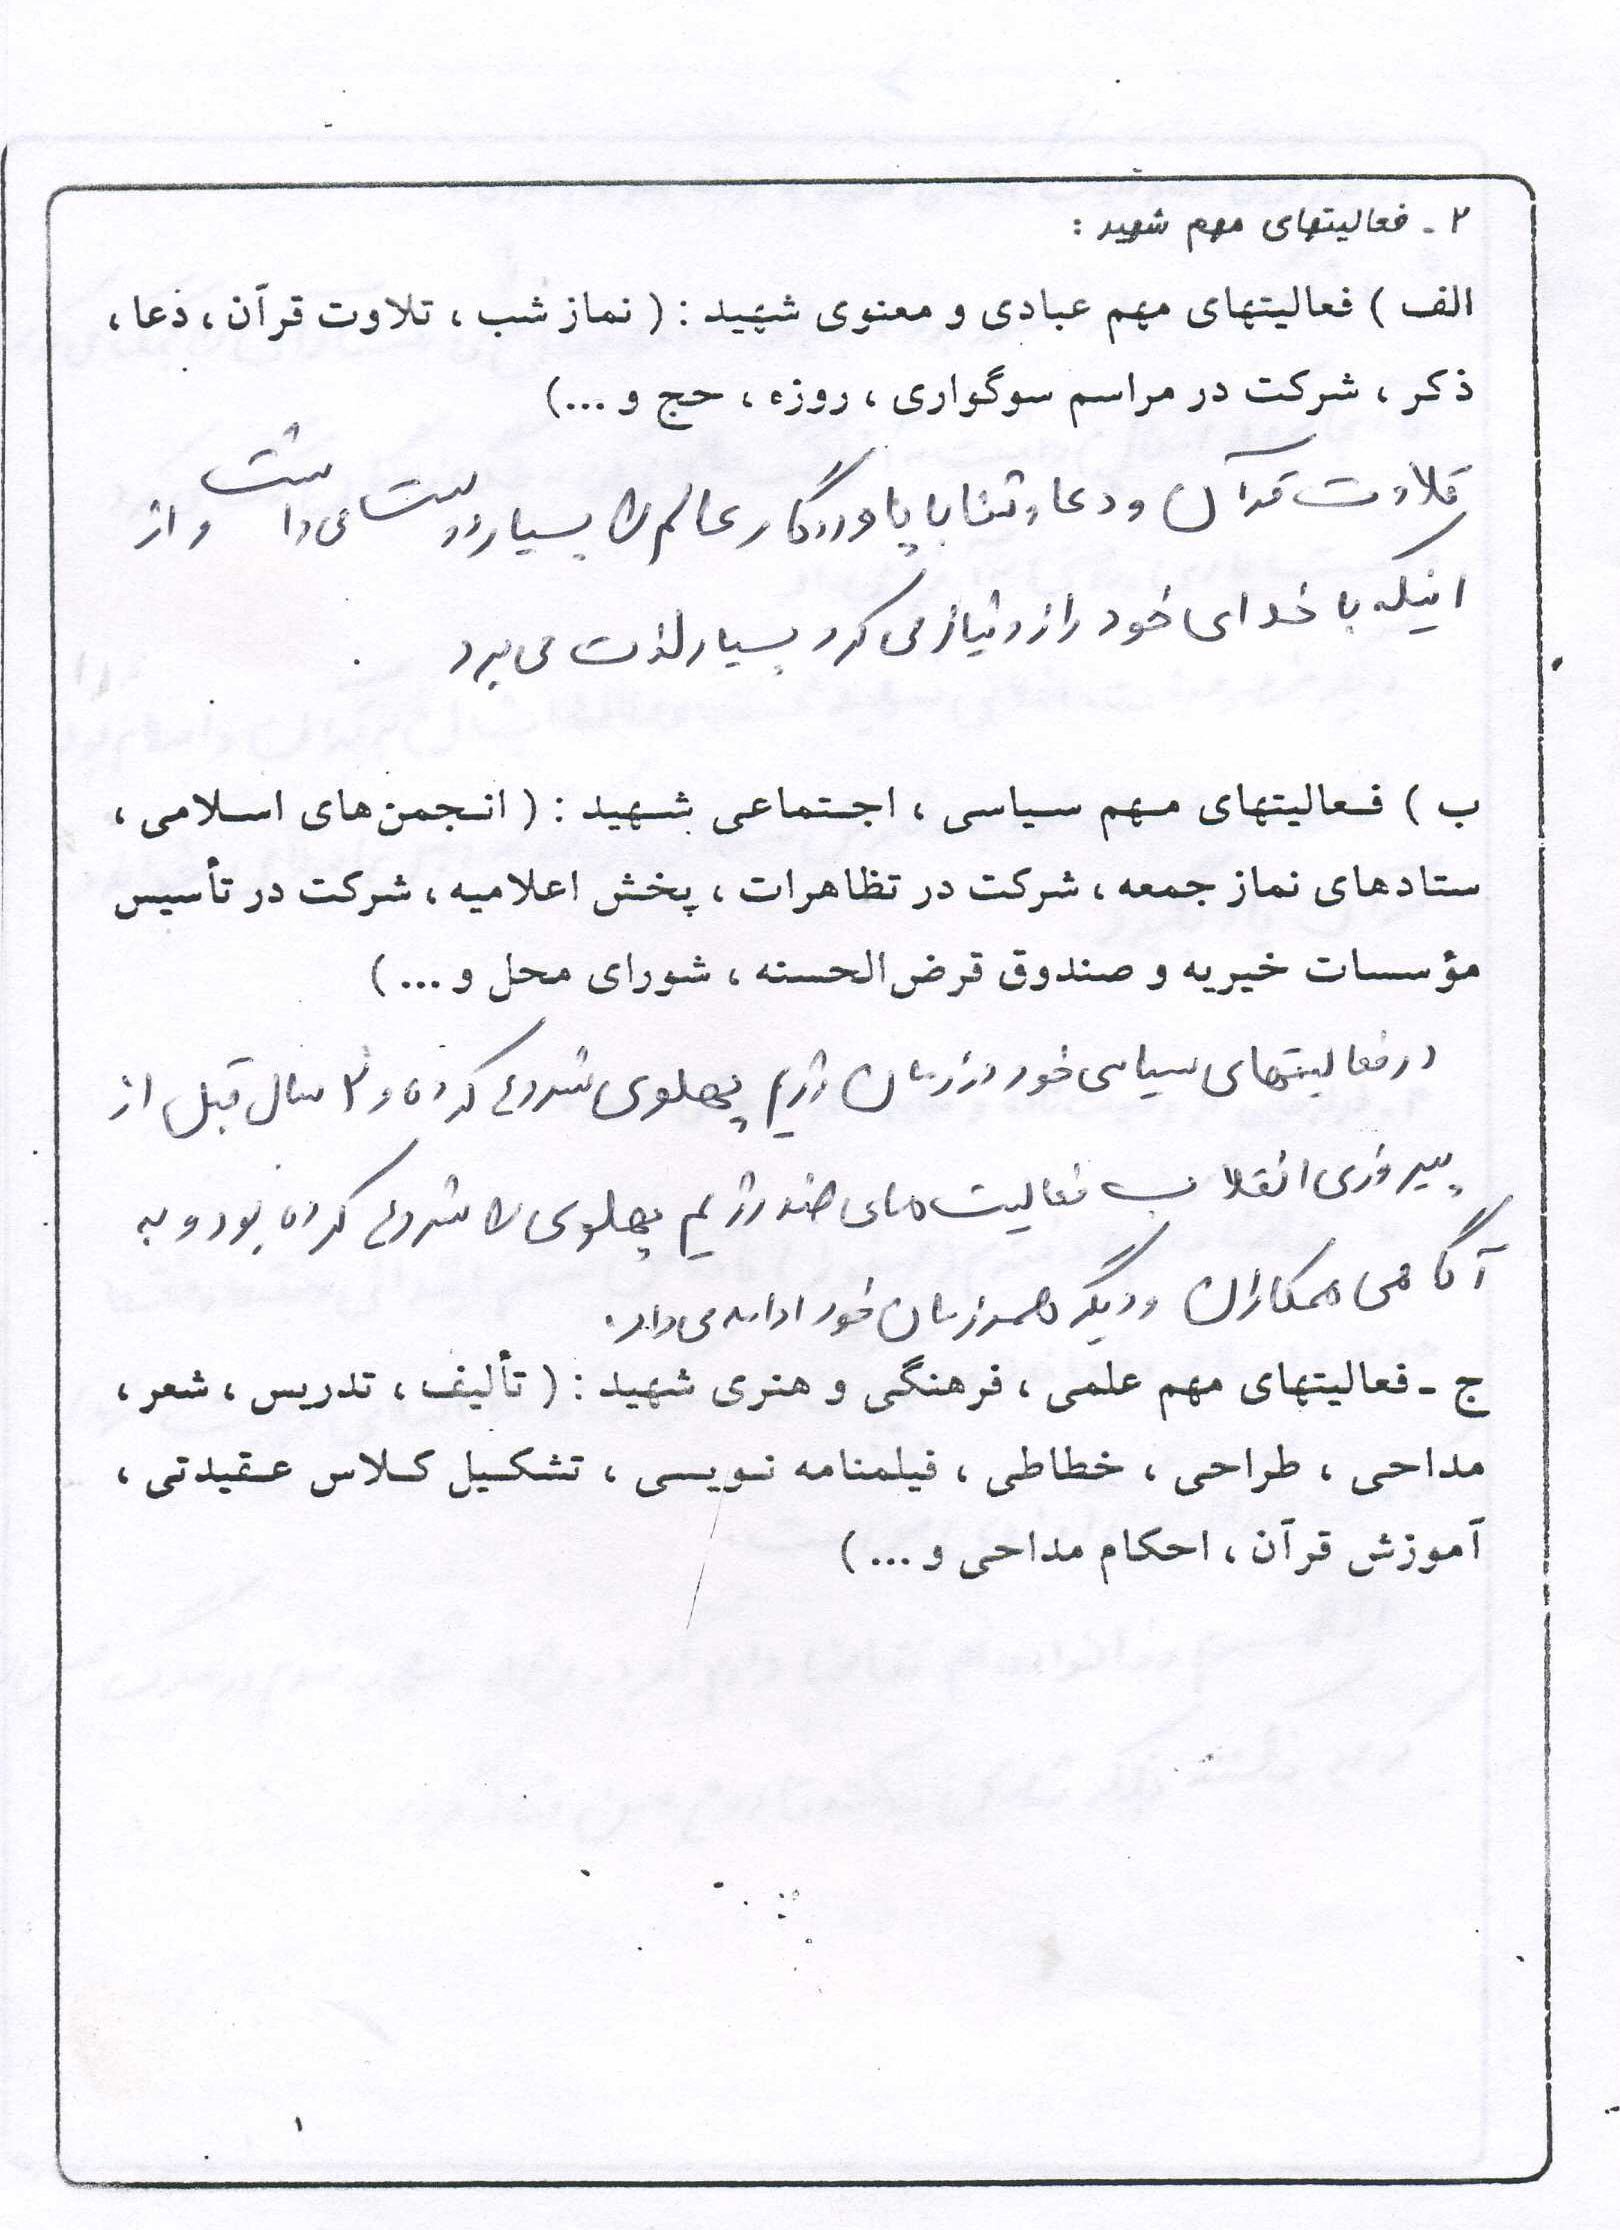 ۲ - فعالیتهای مهم شهید :
الف ) فعالیتهای مهم عبادی و معنوی شهید : ( نماز شب ، تلاوت قرآن ، دعا ،
ذکر ، شرکت در مراسم سوگواری ، روزه ، حج و ...)
تلاوت قرآن و دعا و ثنا با پاوردگار عالم را بسیار دوست می داشت و از
اینکه با خدای خود راز و نیاز می کرد بسیار لذت می برد
ب ) فعالیتهای مهم سیاسی ، اجتماعی شهید : ( انجمن‌های اسلامی ،
ستادهای نماز جمعه ، شرکت در تظاهرات ، پخش اعلامیه ، شرکت در تأسیس
مؤسسات خیریه و صندوق قرض‌الحسنه ، شورای محل و ... )
در فعالیتهای سیاسی خود در زمان رژیم پهلوی شروع کرده و ۲ سال قبل از
پیروزی انقلاب فعالیت های ضد رژیم پهلوی را شروع کرده بود و به
آگاهی همکاران و دیگر همرزمان خود ادامه می داد.
ج - فعالیتهای مهم علمی ، فرهنگی و هنری شهید : ( تألیف ، تدریس ، شعر ،
مداحی ، طراحی ، خطاطی ، فیلمنامه نویسی ، تشکیل کلاس عقیدتی ،
آموزش قرآن ، احکام مداحی و ... )
۱